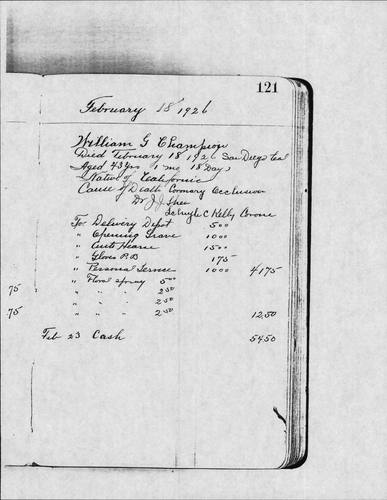 121
February 18 1926
William G Champion
Died February 18 1926 San Diego Cal
Aged 43 yrs 1 mo 18 Days
Native of California
Cause of Death Coronary Occlusion
Dr J. J. Shea
Schuyler C Kelly Corone
To Delivery Depot 500
" Opening Grave 1000
" Auto Hearse 1500
" Gloves P.B 175
" Personal Service 1000 4175
" Floral spray 500
75 " " " 250
" " " 250
75 " " " 250 1250
Feb 23 Cash 5450